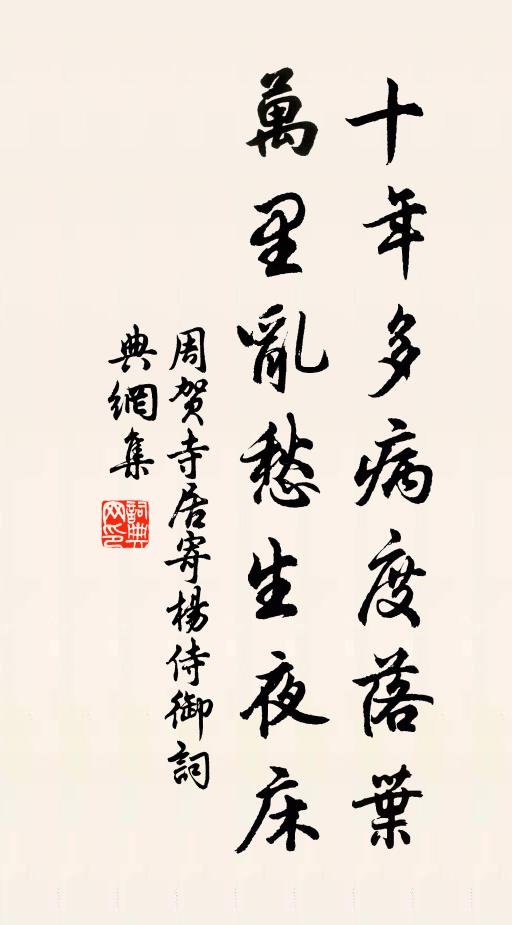 十年多病度落葉
萬里亂愁生夜床
周賀寺居寄楊侍御詞
典網集
詞典
网印